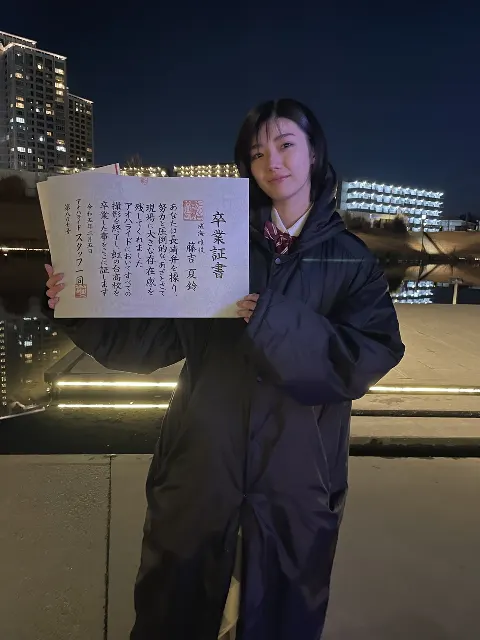 卒業証書
成海唯役
藤吉 夏鈴
あなたは長崎弁を操り、
努力と圧倒的なあざとさで
現場に大きな存在感を
残してくれました
アオハライドにおいてすべての
撮影を終了し、虹の台高校を
卒業した事をここに証します
令和七年二月五日
アオハライド スタッフ一同